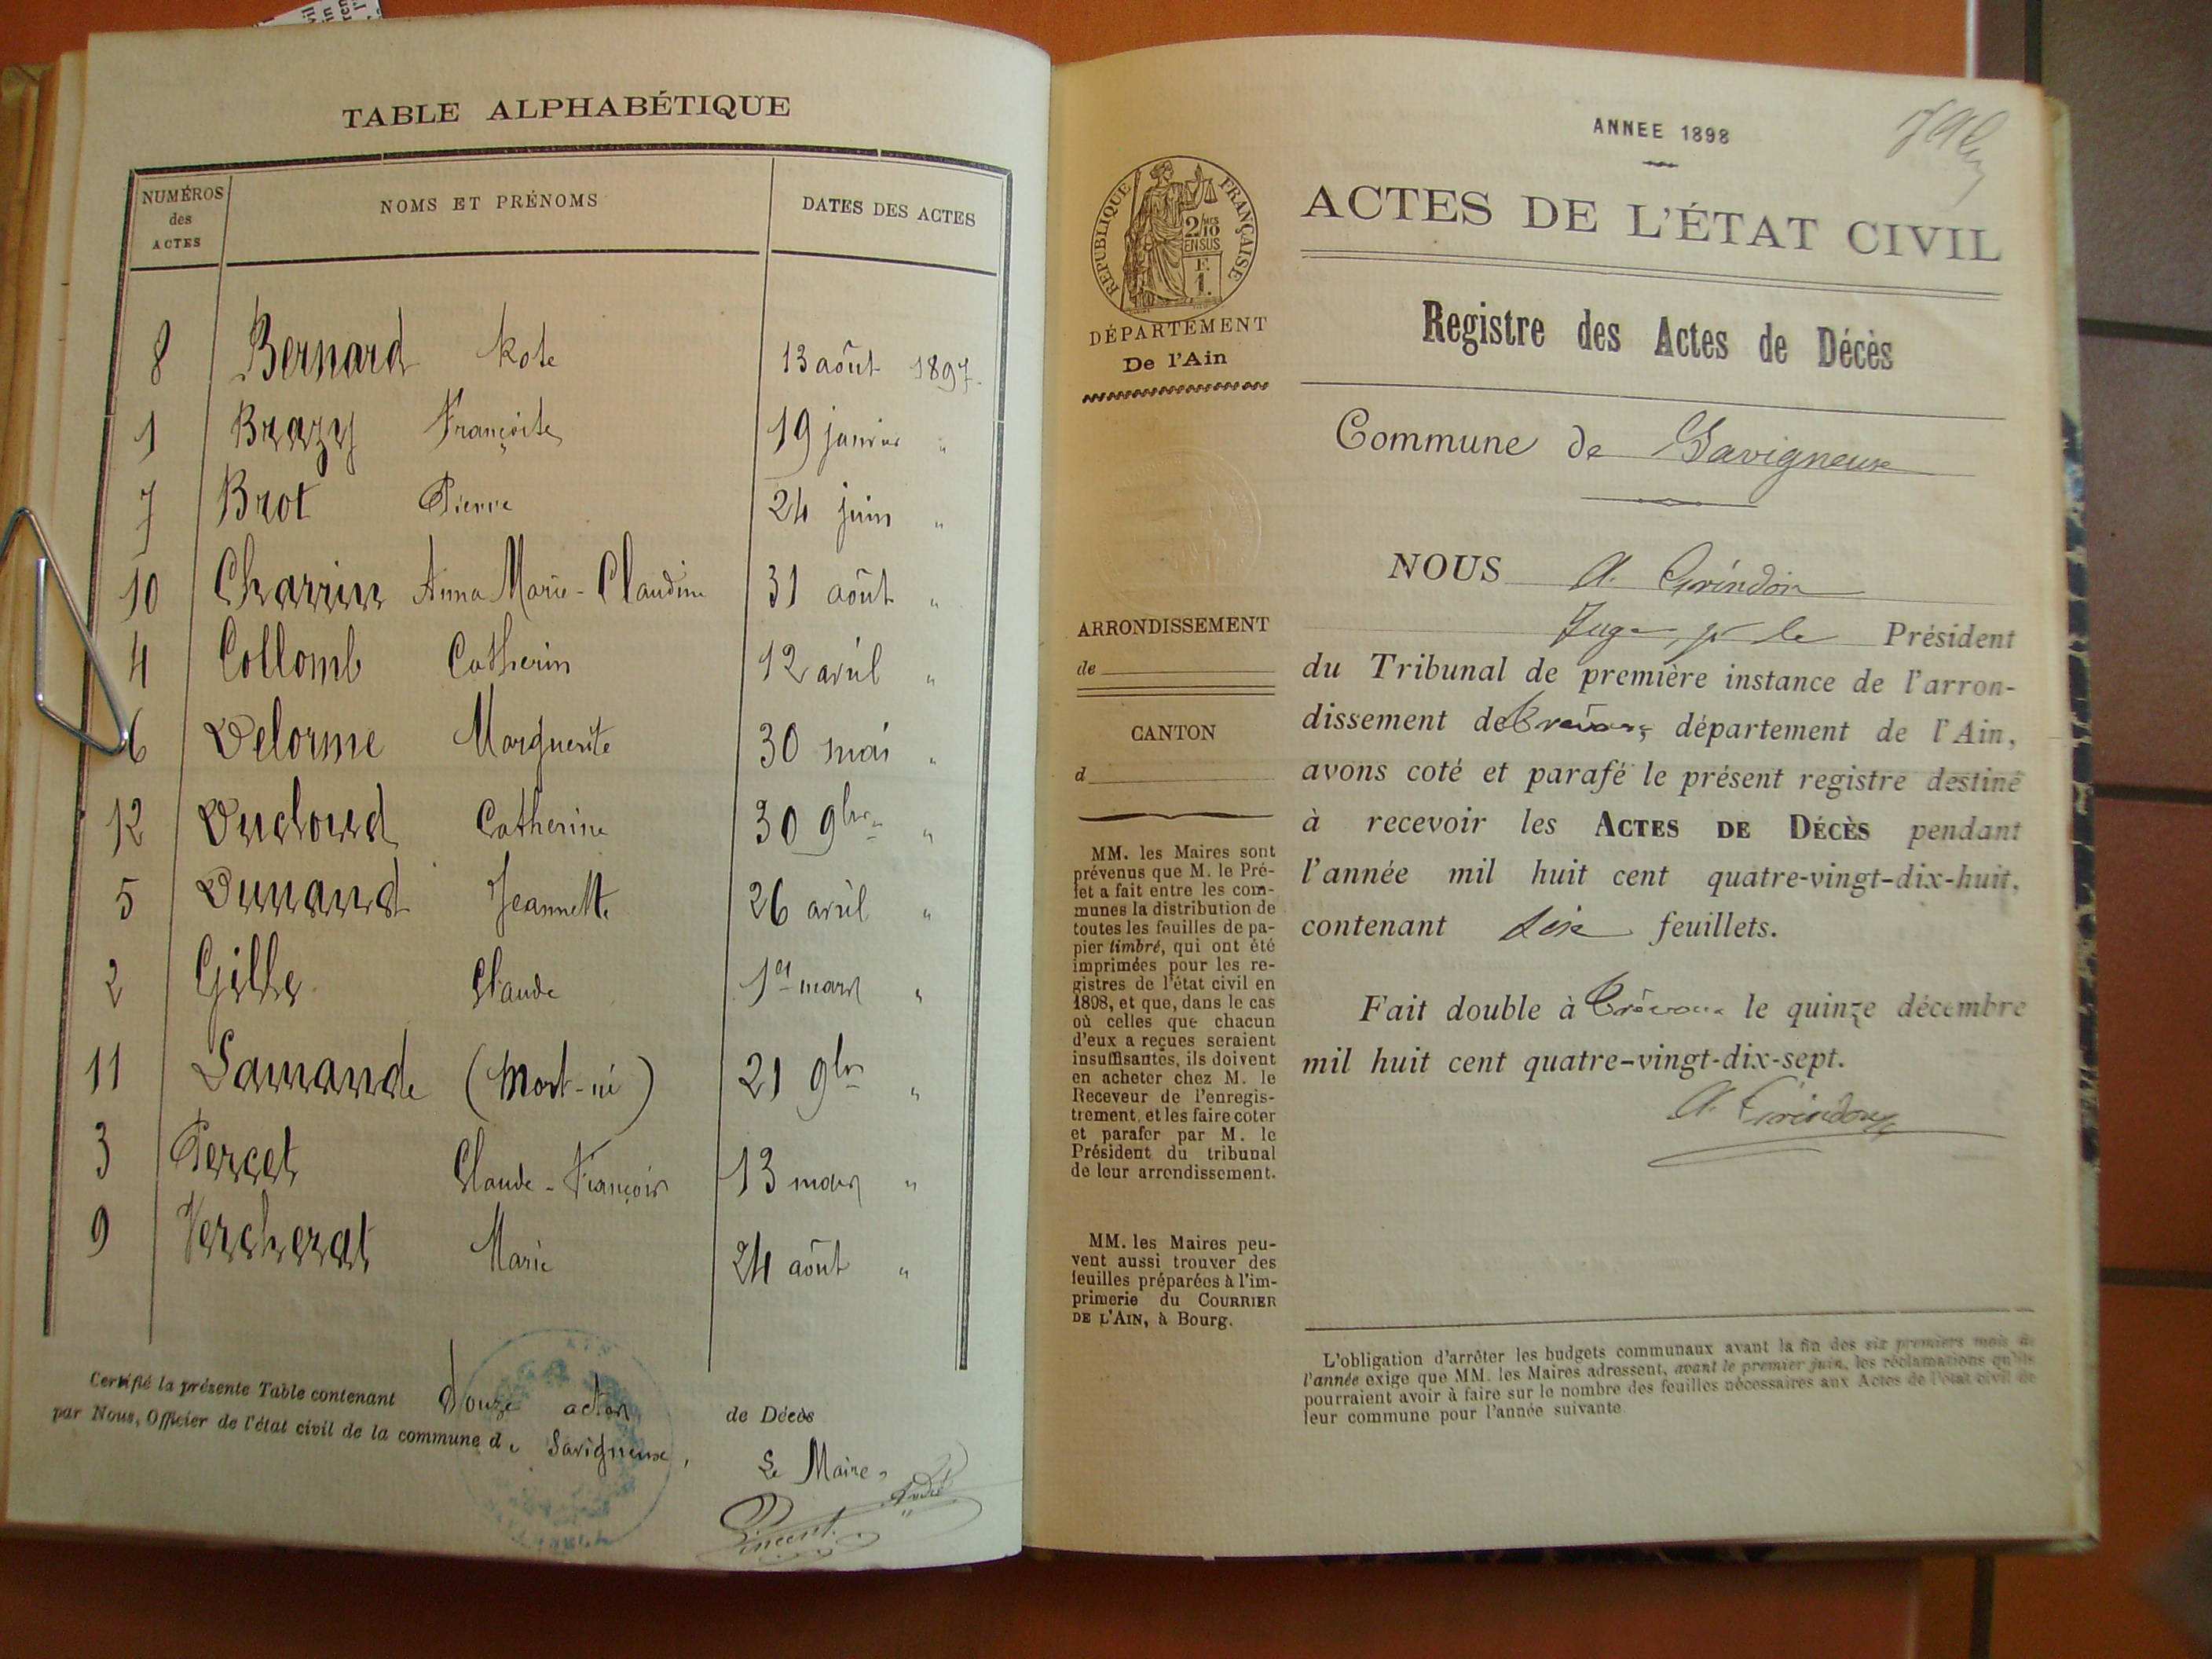 TABLE ALPHABÉTIQUE
NUMÉROS des ACTES NOMS ET PRÉNOMS DATES DES ACTES
8 Bernard 13 août 1897
1 Brazy Françoise 19 janvier "
7 Brot Pierre 24 juin "
10 Charrin Anna Marie-Claudine 31 août "
4 Collomb Catherin 12 avril "
6 Delorme Marguerite 30 mai "
12 Ducloud Catherine 30 9bre "
5 Dunand Jeannette 26 avril "
2 Gilles Claude 1er mars "
11 Lamande (Mort-né) 21 9bre "
3 Percet Claude-François 13 mars "
9 Vercherat Marie 24 août "
Certifié la présente Table contenant douze actes de Décès
par Nous, Officier de l'état civil de la commune de Savigneux,
Le Maire,
Vincent André
ANNEE 1898
ACTES DE L'ÉTAT CIVIL
RÉPUBLIQUE FRANÇAISE
2/10 MES
EN SUS
F.
1.
DÉPARTEMENT
De l'Ain
Registre des Actes de Décès
Commune de Savigneux
NOUS A. Grindon
Juge, pr le Président
du Tribunal de première instance de l'arron-
dissement de Trévoux, département de l'Ain,
avons coté et parafé le présent registre destiné
à recevoir les ACTES DE DÉCÈS pendant
l'année mil huit cent quatre-vingt-dix-huit,
contenant dix feuillets.
Fait double à Trévoux le quinze décembre
mil huit cent quatre-vingt-dix-sept.
A. Grindon
ARRONDISSEMENT
de
CANTON
d
MM. les Maires sont
prévenus que M. le Pré-
fet a fait entre les com-
munes la distribution de
toutes les feuilles de pa-
pier timbré, qui ont été
imprimées pour les re-
gistres de l'état civil en
1898, et que, dans le cas
où celles que chacun
d'eux a reçues seraient
insuffisantes, ils doivent
en acheter chez M. le
Receveur de l'enregis-
trement, et les faire coter
et parafer par M. le
Président du tribunal
de leur arrondissement.
MM. les Maires peu-
vent aussi trouver des
feuilles préparées à l'im-
primerie du COURRIER
DE L'AIN, à Bourg.
L'obligation d'arrêter les budgets communaux avant la fin des six premiers mois de
l'année exige que MM. les Maires adressent, avant le premier juin, les réclamations qu'ils
pourraient avoir à faire sur le nombre des feuilles nécessaires aux Actes de l'état civil de
leur commune pour l'année suivante.